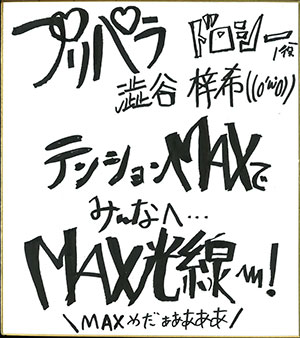 プリパラ ドロシー役
澁谷 梓希((o'ω'o))
テンションMAXで
みんなへ…
MAX光線〰!
\MAXめだぁぁあああ/